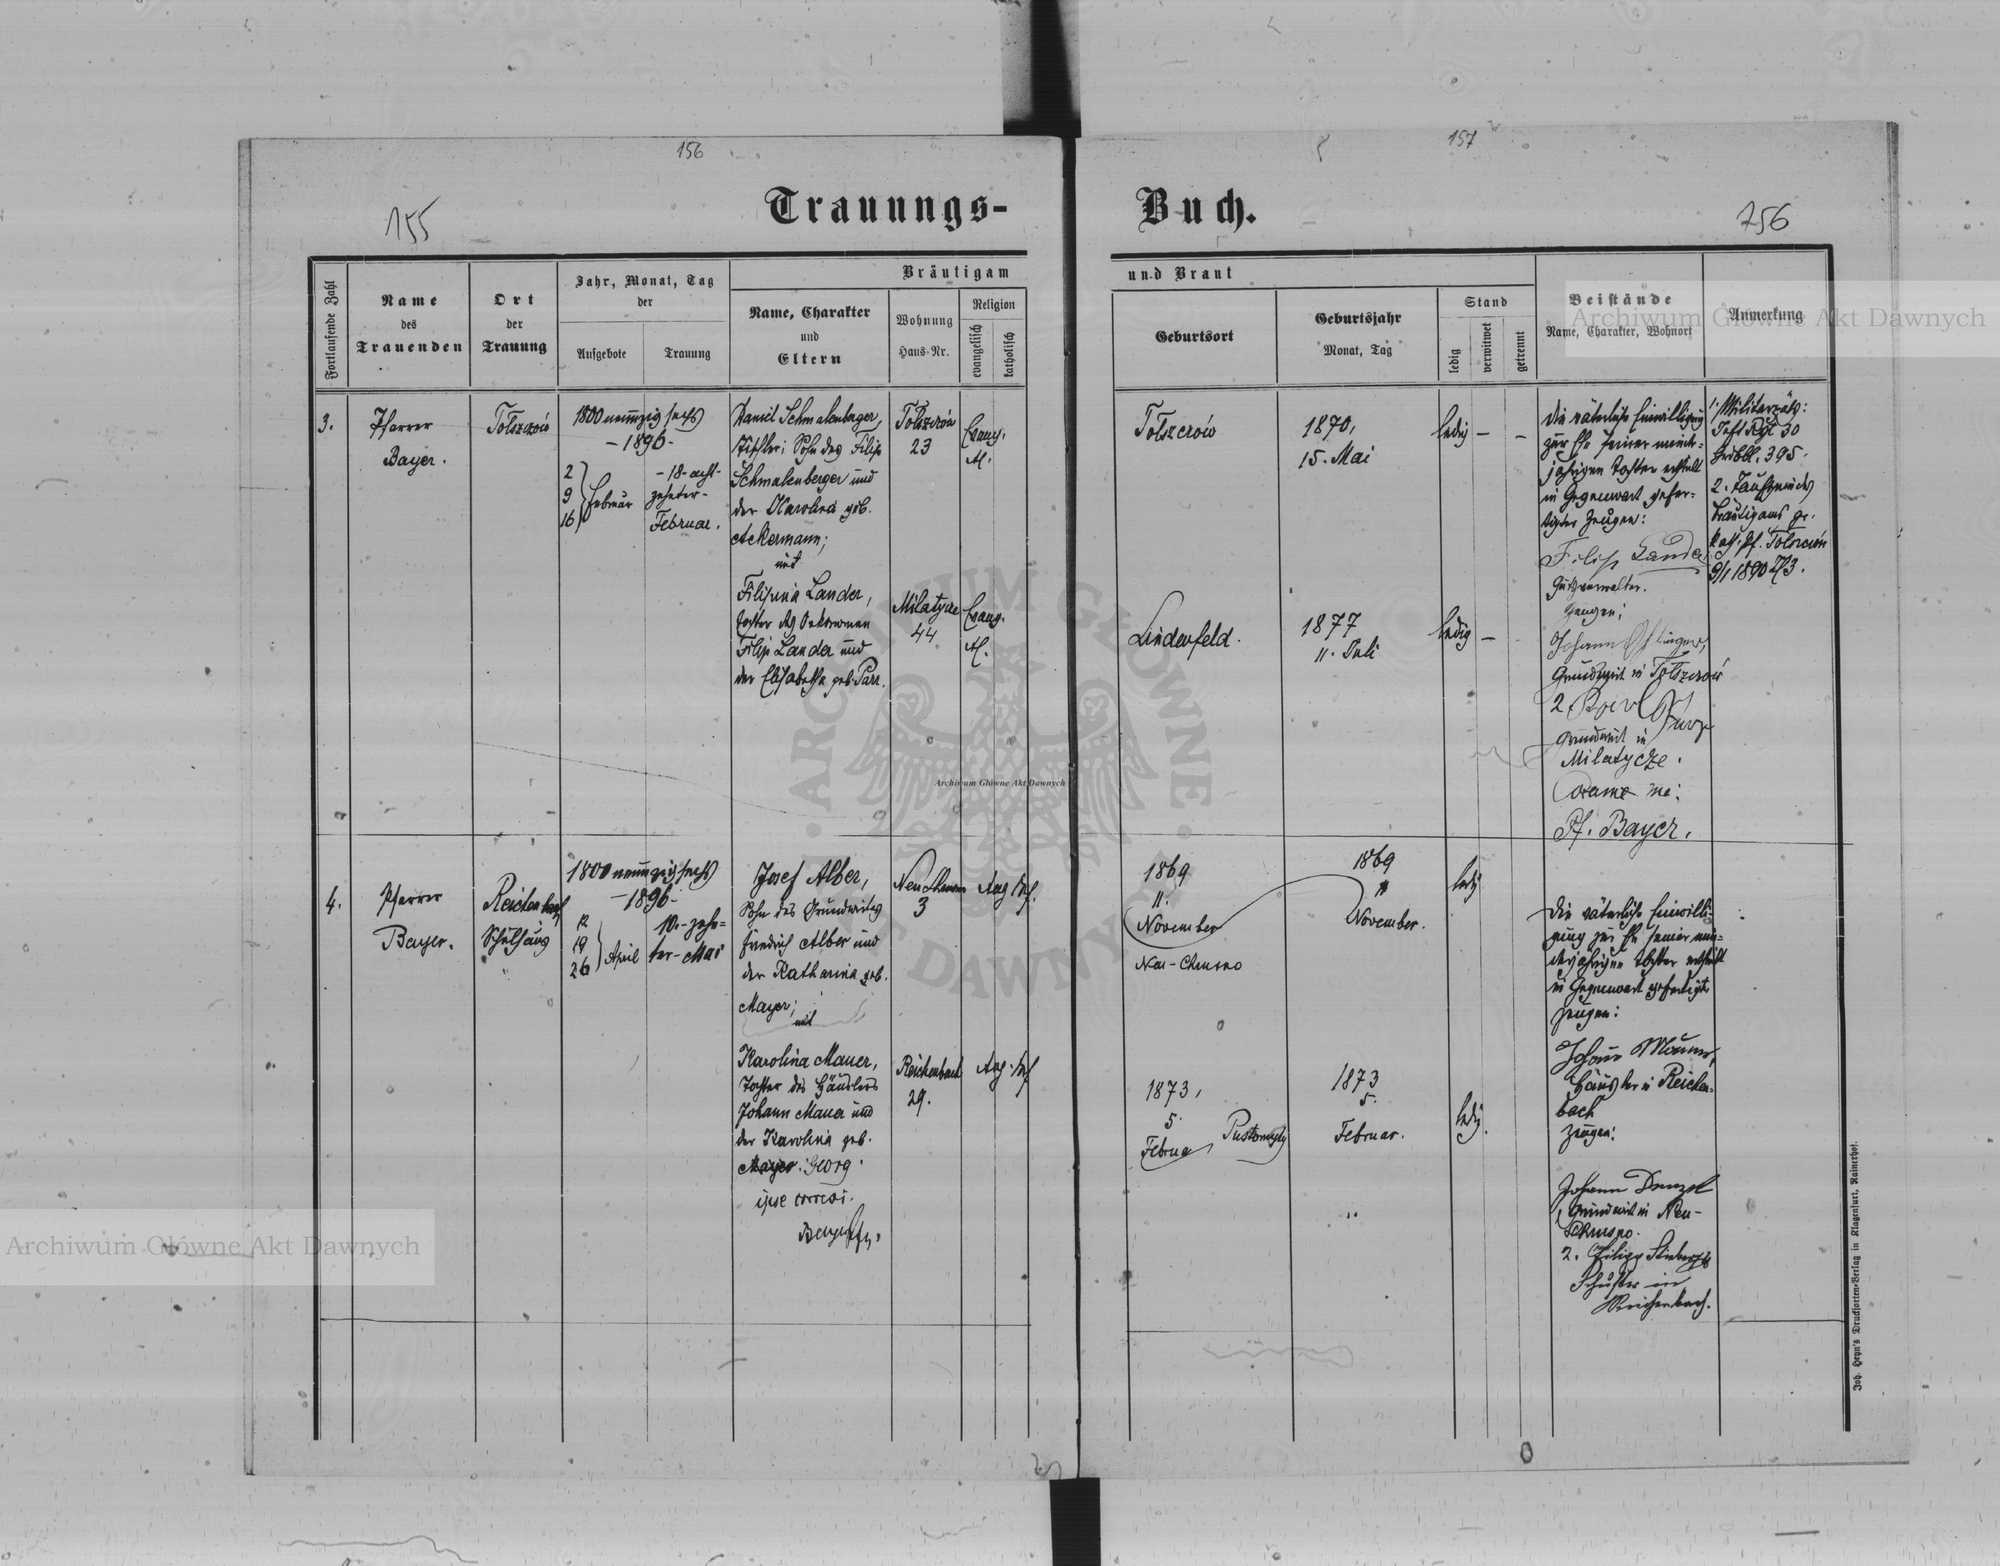 156
157
155
256
Trauungs-
Buch.
Fortlaufende Zahl
Name
des
Trauenden
Ort
der
Trauung
Jahr, Monat, Tag
der
Aufgebote
Trauung
Bräutigam
Name, Charakter
und
Eltern
Wohnung
Haus-Nr.
Religion
evangelisch
katholisch
und Braut
Geburtsort
Geburtsjahr
Monat, Tag
Stand
ledig
verwitwet
getrennt
Beistände
Name, Charakter, Wohnort
Anmerkung
3.
Pfarrer
Bayer.
Tolszczów
1800 neunzig sechs
- 1896 -
2
9
16
Februar
- 18 - acht-
zehnter -
Februar.
Daniel Schmalenberger,
Tischler; Sohn des Filip
Schmalenberger und
der Karolina geb.
Ackermann;
mit
Filipina Lander,
Tochter des Oekonomen
Filip Lander und
der Elisabetha geb. Parr.
Tolszczów
23
Milatycze
44
Evang.
Evang.
Tolszczów
1870,
15. Mai
ledig - -
Linderfeld.
1877
11. Juli
ledig -
Die väterliche Einwilligung
zur Ehe seiner minder-
jährigen Tochter erteilt
in Gegenwart gefer-
tigter Zeugen:
Filip Lander
Gutsverwalter.
Zeugen:
Johann
Grundwirt in Tolszczów
2
Grundwirt in
Milatycze.
Coram me:
Pf. Bayer.
1. Militär
Rgt 30
395.
2. Taufschein des
Bräutigams
Pf. Tolszczów
9/1 1890 Z/3.
4.
Pfarrer
Bayer.
Reichenbach
Schulhaus
1800 neunzig sechs
- 1896 -
12
19
26
April
10. - zehn-
ter - Mai
Josef Alber,
Sohn des Grundwirtes
Friedrich Alber und
der Katharina geb.
Mayer;
mit
Karolina Mauer,
Tochter des Häuslers
Johann Mauer und
der Karolina geb.
Mayer: Georg
ipse correxi.
3
Reichenbach
29.
1869
11.
November
Neu-Chrusno
1869
11
November.
ledig
1873,
5.
Februar
Pustomyty
1873
5.
Februar.
ledig.
Die väterliche Einwilli-
gung zur Ehe seiner min-
derjährigen Tochter erteilt
in Gegenwart gefertigter
Zeugen:
Johann Mauer,
Häusler in Reichen-
bach
Zeugen:
Johann Denzel
Grundwirt in Neu-
Chrusno.
2. Filipp
Schuster in
Reichenbach.
Joh. Heyn's Drucksorten-Verlag in Klagenfurt, Rainerhof.
Archiwum Główne Akt Dawnych
Archiwum Główne Akt Dawnych
Archiwum Główne Akt Dawnych
ARCHIWUM GŁÓWNE AKT DAWNYCH